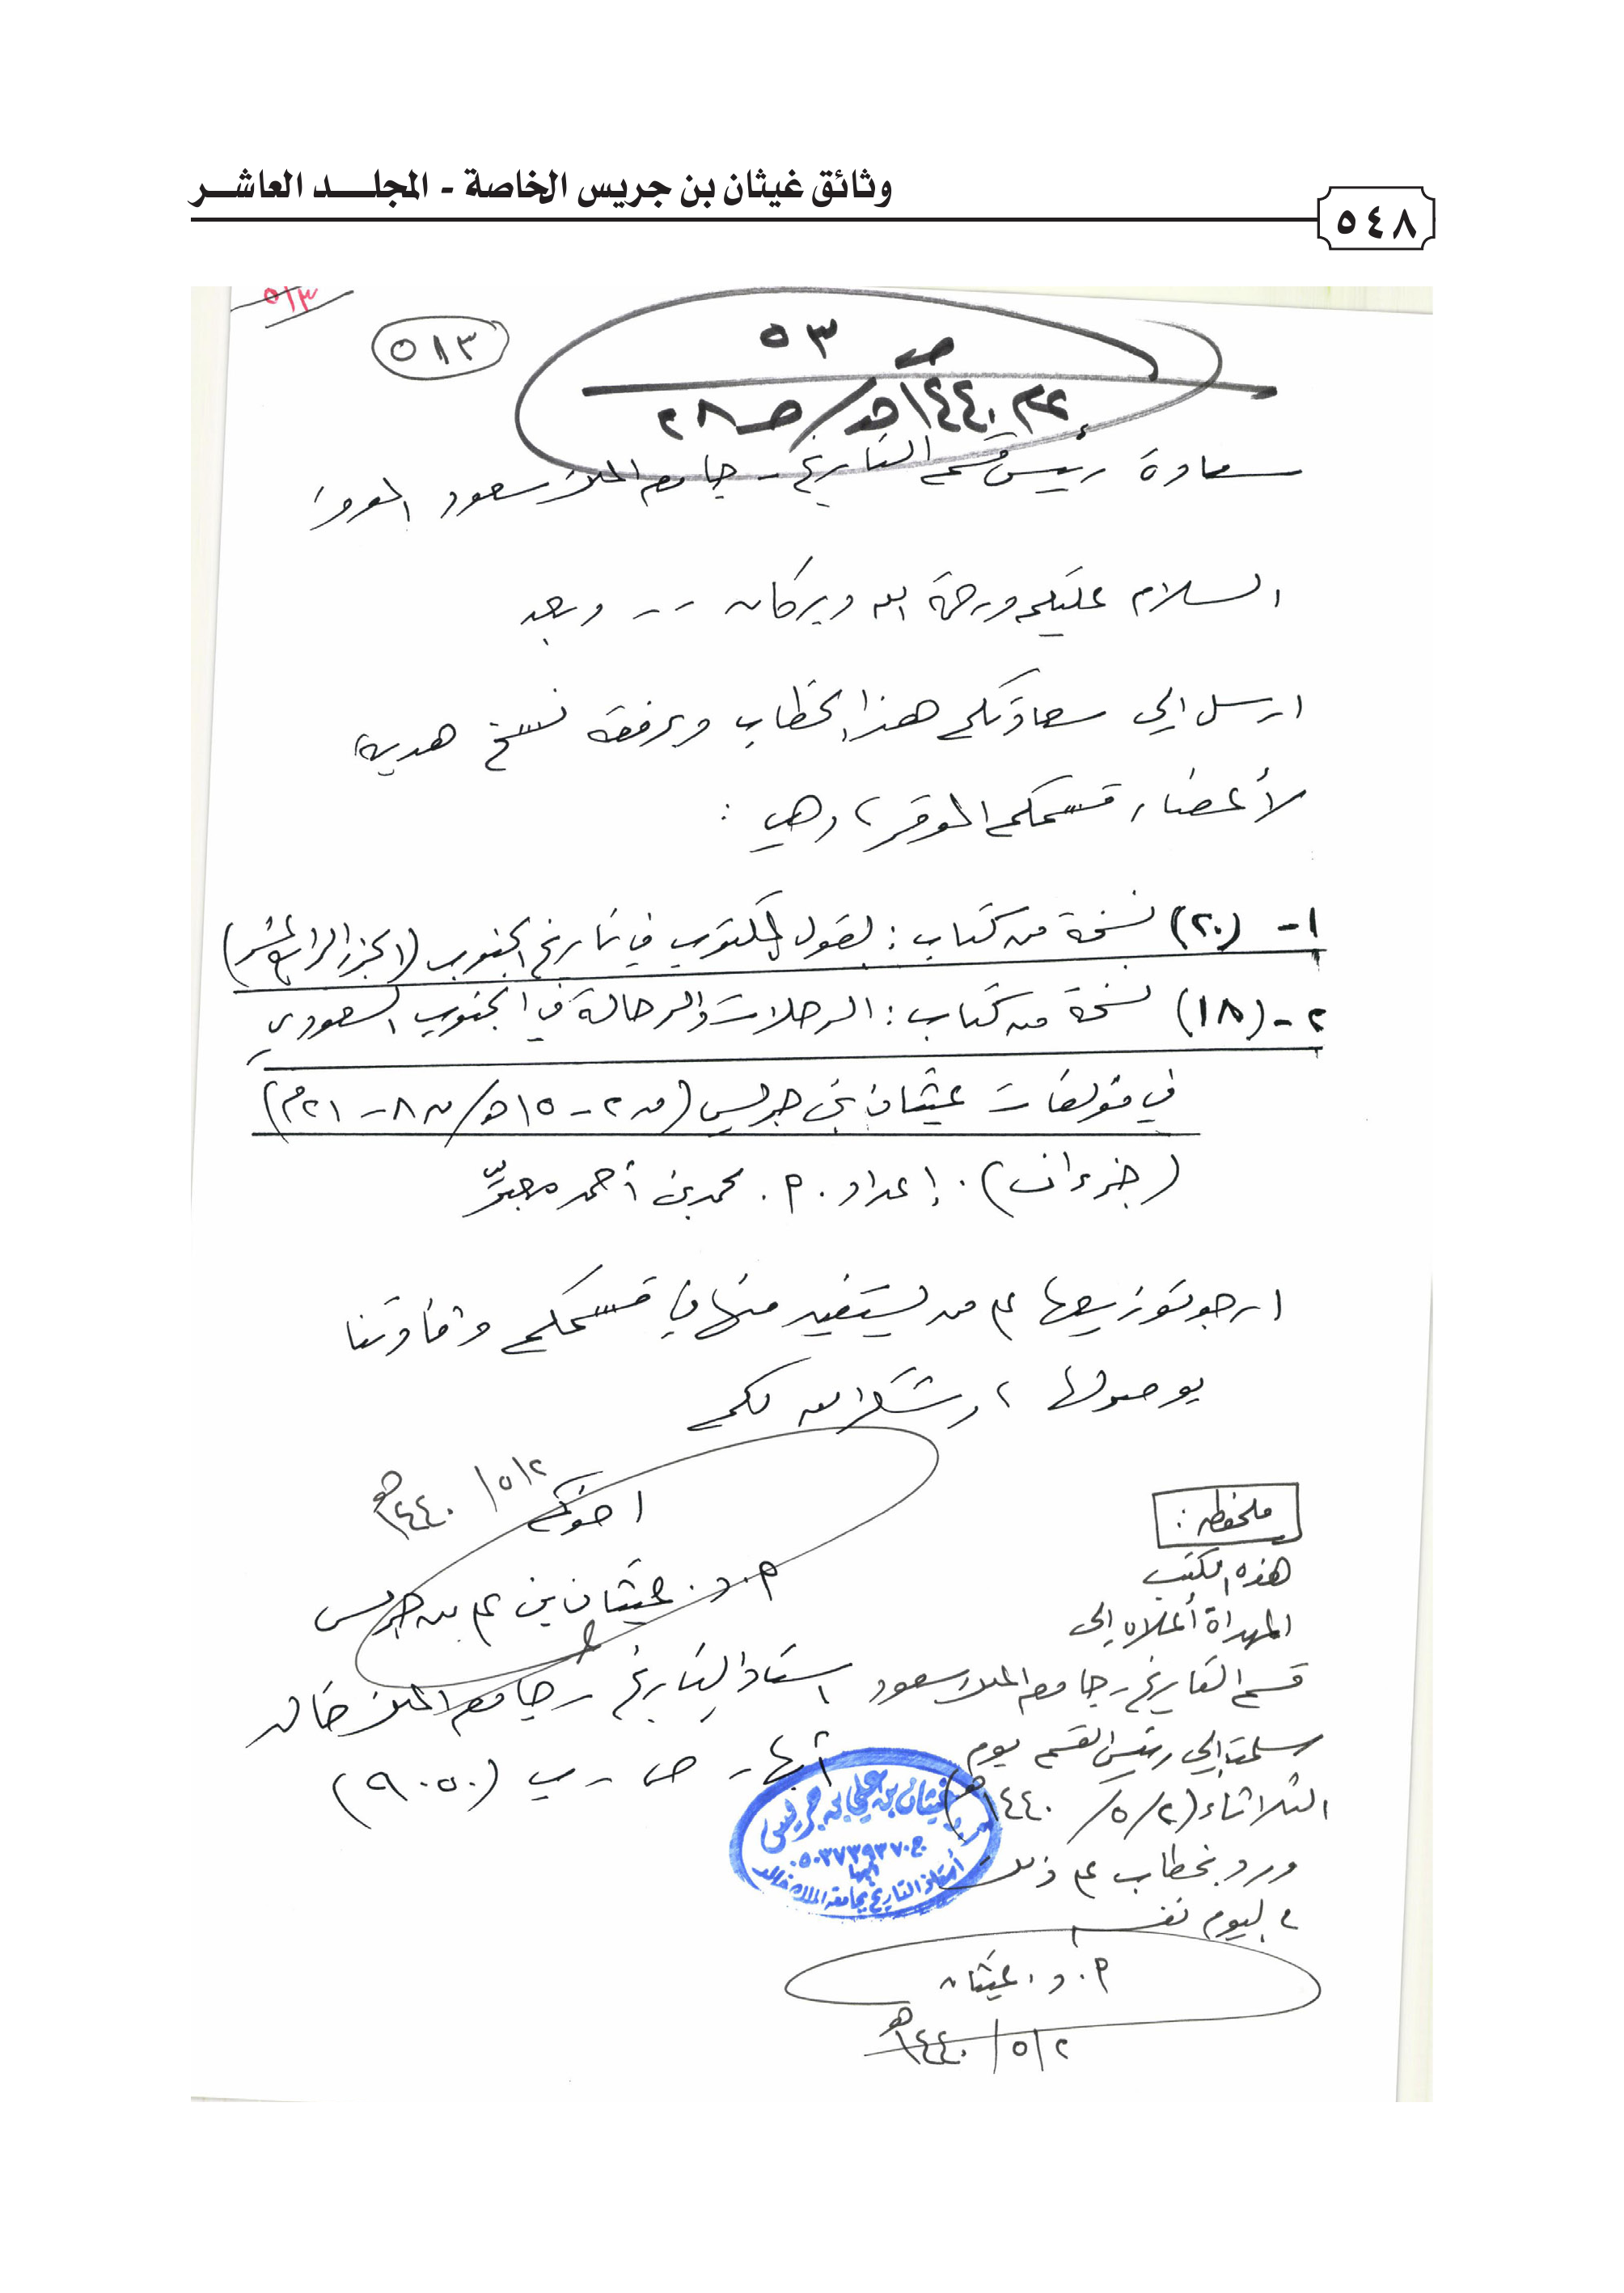 وثائق غيثان بن جريس الخاصة - المجلـــد العاشـــر
٥٤٨
٥١٣
٥١٣
ص ٥٣
١٤٤٠هـ / ص ٢٨
سعادة رئيس قسم التاريخ - جامعة الملك سعود الموقر
السلام عليكم ورحمة الله وبركاته -- وبعد
ارسل إلى سعادتكم هذا الخطاب وبرفقه نسخ هدية
لأعضاء قسمكم الموقر، وهي :
١- (٢٠) نسخة من كتاب : القول المكتوب في تاريخ الجنوب (الجزء الرابع عشر)
٢- (١٨) نسخة من كتاب : الرحلات والرحالة في الجنوب السعودي
في مؤلفات غيثان بن جريس (ق ٢ - ١٥هـ / ق ٨ - ٢١م)
(جزءان) . إعداد . أ . محمد بن أحمد معبر
ارجو توزيعها على من يستفيد منها في قسمكم وإفادتنا
بوصولها ، وشكر الله لكم
٢ / ٥ / ١٤٤٠هـ
اخوكم
أ.د. غيثان بن علي بن جريس
استاذ التاريخ - جامعة الملك خالد
أبها - ص - ب (٩٠٥٠)
ملحوظة :
هذه الكتب
المهداة أعلاه إلى
قسم التاريخ - جامعة الملك سعود
سلمت إلى رئيس القسم يوم
الثلاثاء (٢/٥/١٤٤٠هـ)
ورد بخطاب على ذلك
في اليوم نفسه
أ. د. غيثان
٢ / ٥ / ١٤٤٠هـ
أ.د. غيثان بن علي بن جريس
ج ٠٥٠٣٧٣٩٣٧٠
أبها
أستاذ التاريخ بجامعة الملك خالد